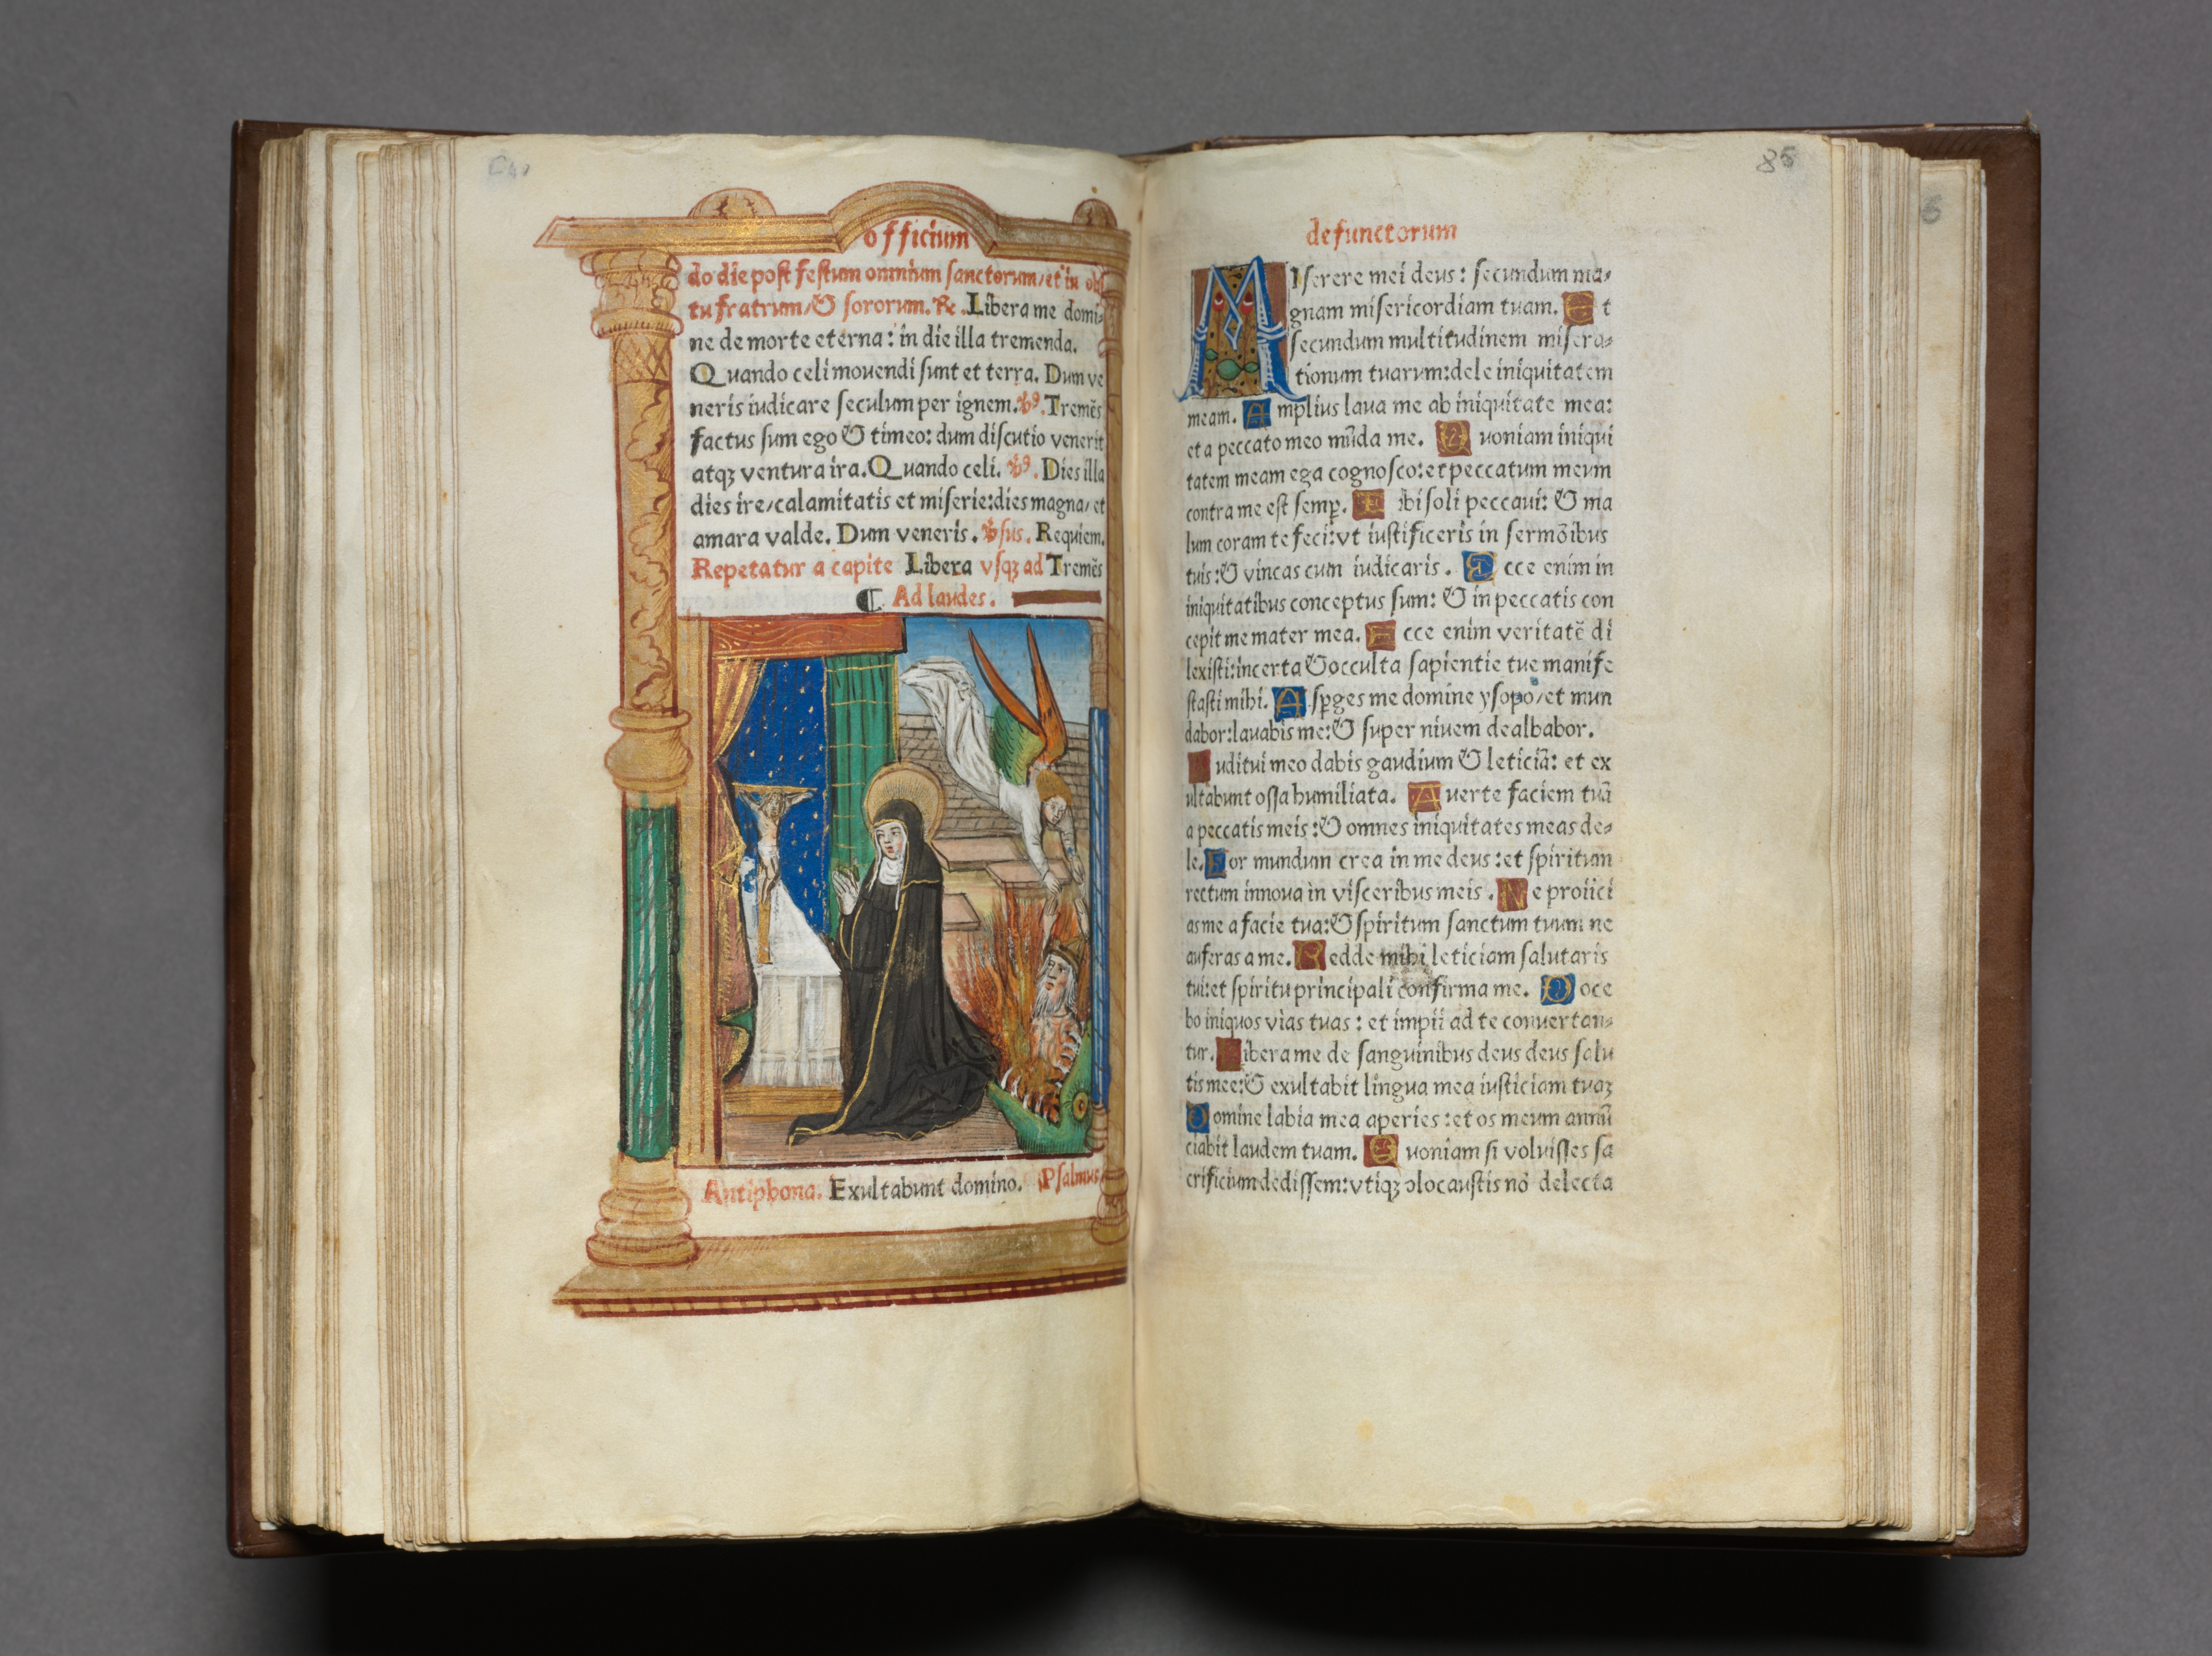 officium
do die poſt feſtum omnium ſanctorum/et in obi
tu fratrum/& ſororum. ℞. Libera me domi-
ne de morte eterna: in die illa tremenda.
Quando celi mouendi ſunt et terra. Dum ve
neris iudicare ſeculum per ignem. ꝟ. Tremēs
factus ſum ego & timeo: dum diſcutio venerit
atqꝫ ventura ira. Quando celi. ꝟ. Dies illa
dies ire/calamitatis et miſerie: dies magna/et
amara valde. Dum veneris. ꝟſus. Requiem.
Repetatur a capite Libera vſqꝫ ad Tremēs
Ad laudes.
Antiphona. Exultabunt domino. Pſalmus
85
defunctorum
MIſerere mei deus: ſecundum ma-
gnam miſericordiam tuam. Et
ſecundum multitudinem miſera-
tionum tuarum: dele iniquitatem
meam. Amplius laua me ab iniquitate mea:
et a peccato meo mūda me. Quoniam iniqui
tatem meam ega cognoſco: et peccatum meum
contra me eſt ſemꝑ. Tibi ſoli peccaui: & ma
lum coram te feci: vt iuſtificeris in ſermōibus
tuis: & vincas cum iudicaris. Ecce enim in
iniquitatibus conceptus ſum: & in peccatis con
cepit me mater mea. Ecce enim veritatē di
lexiſti: incerta & occulta ſapientie tue manife
ſtaſti mihi. Aſꝑges me domine yſopo/et mun
dabor: lauabis me: & ſuper niuem dealbabor.
uditui meo dabis gaudium & leticiā: et ex
ultabunt oſſa humiliata. Auerte faciem tuā
a peccatis meis: & omnes iniquitates meas de-
le. Cor mundum crea in me deus: et ſpiritum
rectum innoua in viſceribus meis. Ne proiici
as me a facie tua: & ſpiritum ſanctum tuum ne
auferas a me. Redde mihi leticiam ſalutaris
tui: et ſpiritu principali confirma me. Doce
bo iniquos vias tuas: et impii ad te conuertan-
tur. Libera me de ſanguinibus deus deus ſalu
tis mee: & exultabit lingua mea iuſticiam tuaꝫ
Domine labia mea aperies: et os meum annū
ciabit laudem tuam. Quoniam ſi voluiſſes ſa
crificium dediſſem: vtiqꝫ olocauſtis nō delecta